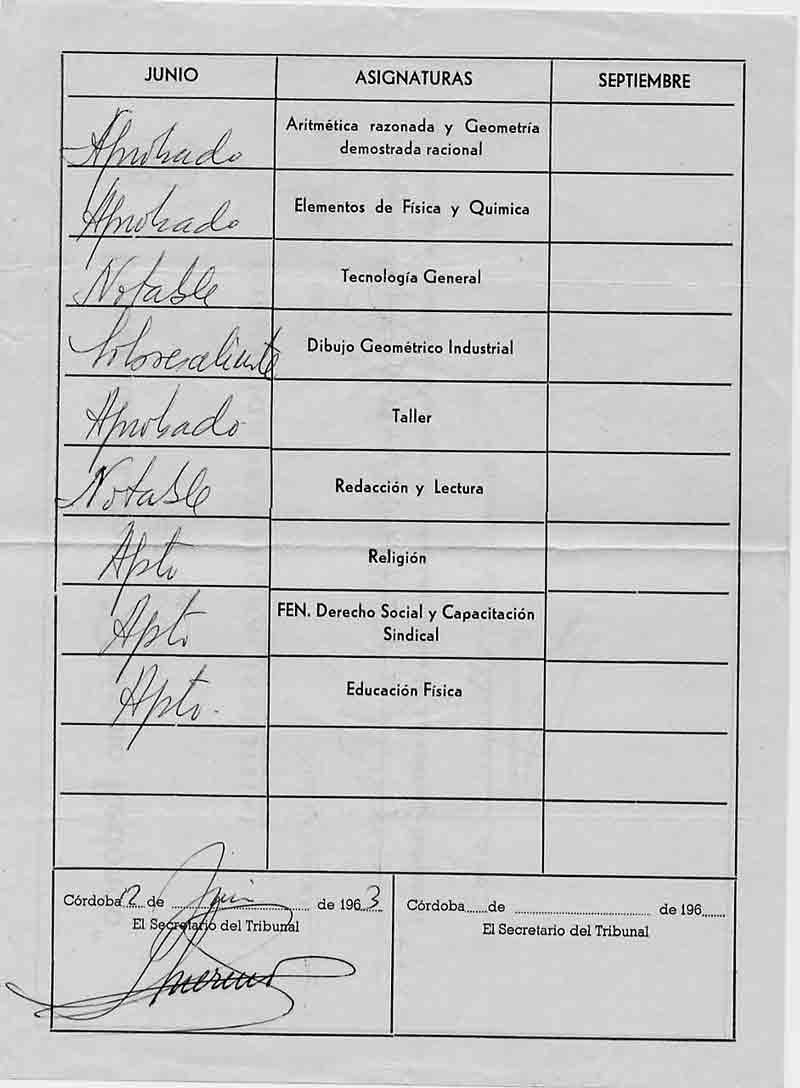 JUNIO ASIGNATURAS SEPTIEMBRE
Aprobado Aritmética razonada y Geometría
demostrada racional
Aprobado Elementos de Física y Quimica
Notable Tecnología General
Sobresaliente Dibujo Geométrico Industrial
Aprobado Taller
Notable Redacción y Lectura
Apto Religión
Apto FEN. Derecho Social y Capacitación
Sindical
Apto. Educación Física
Córdoba 12 de Junio de 1963
El Secretario del Tribunal
Córdoba de de 196
El Secretario del Tribunal